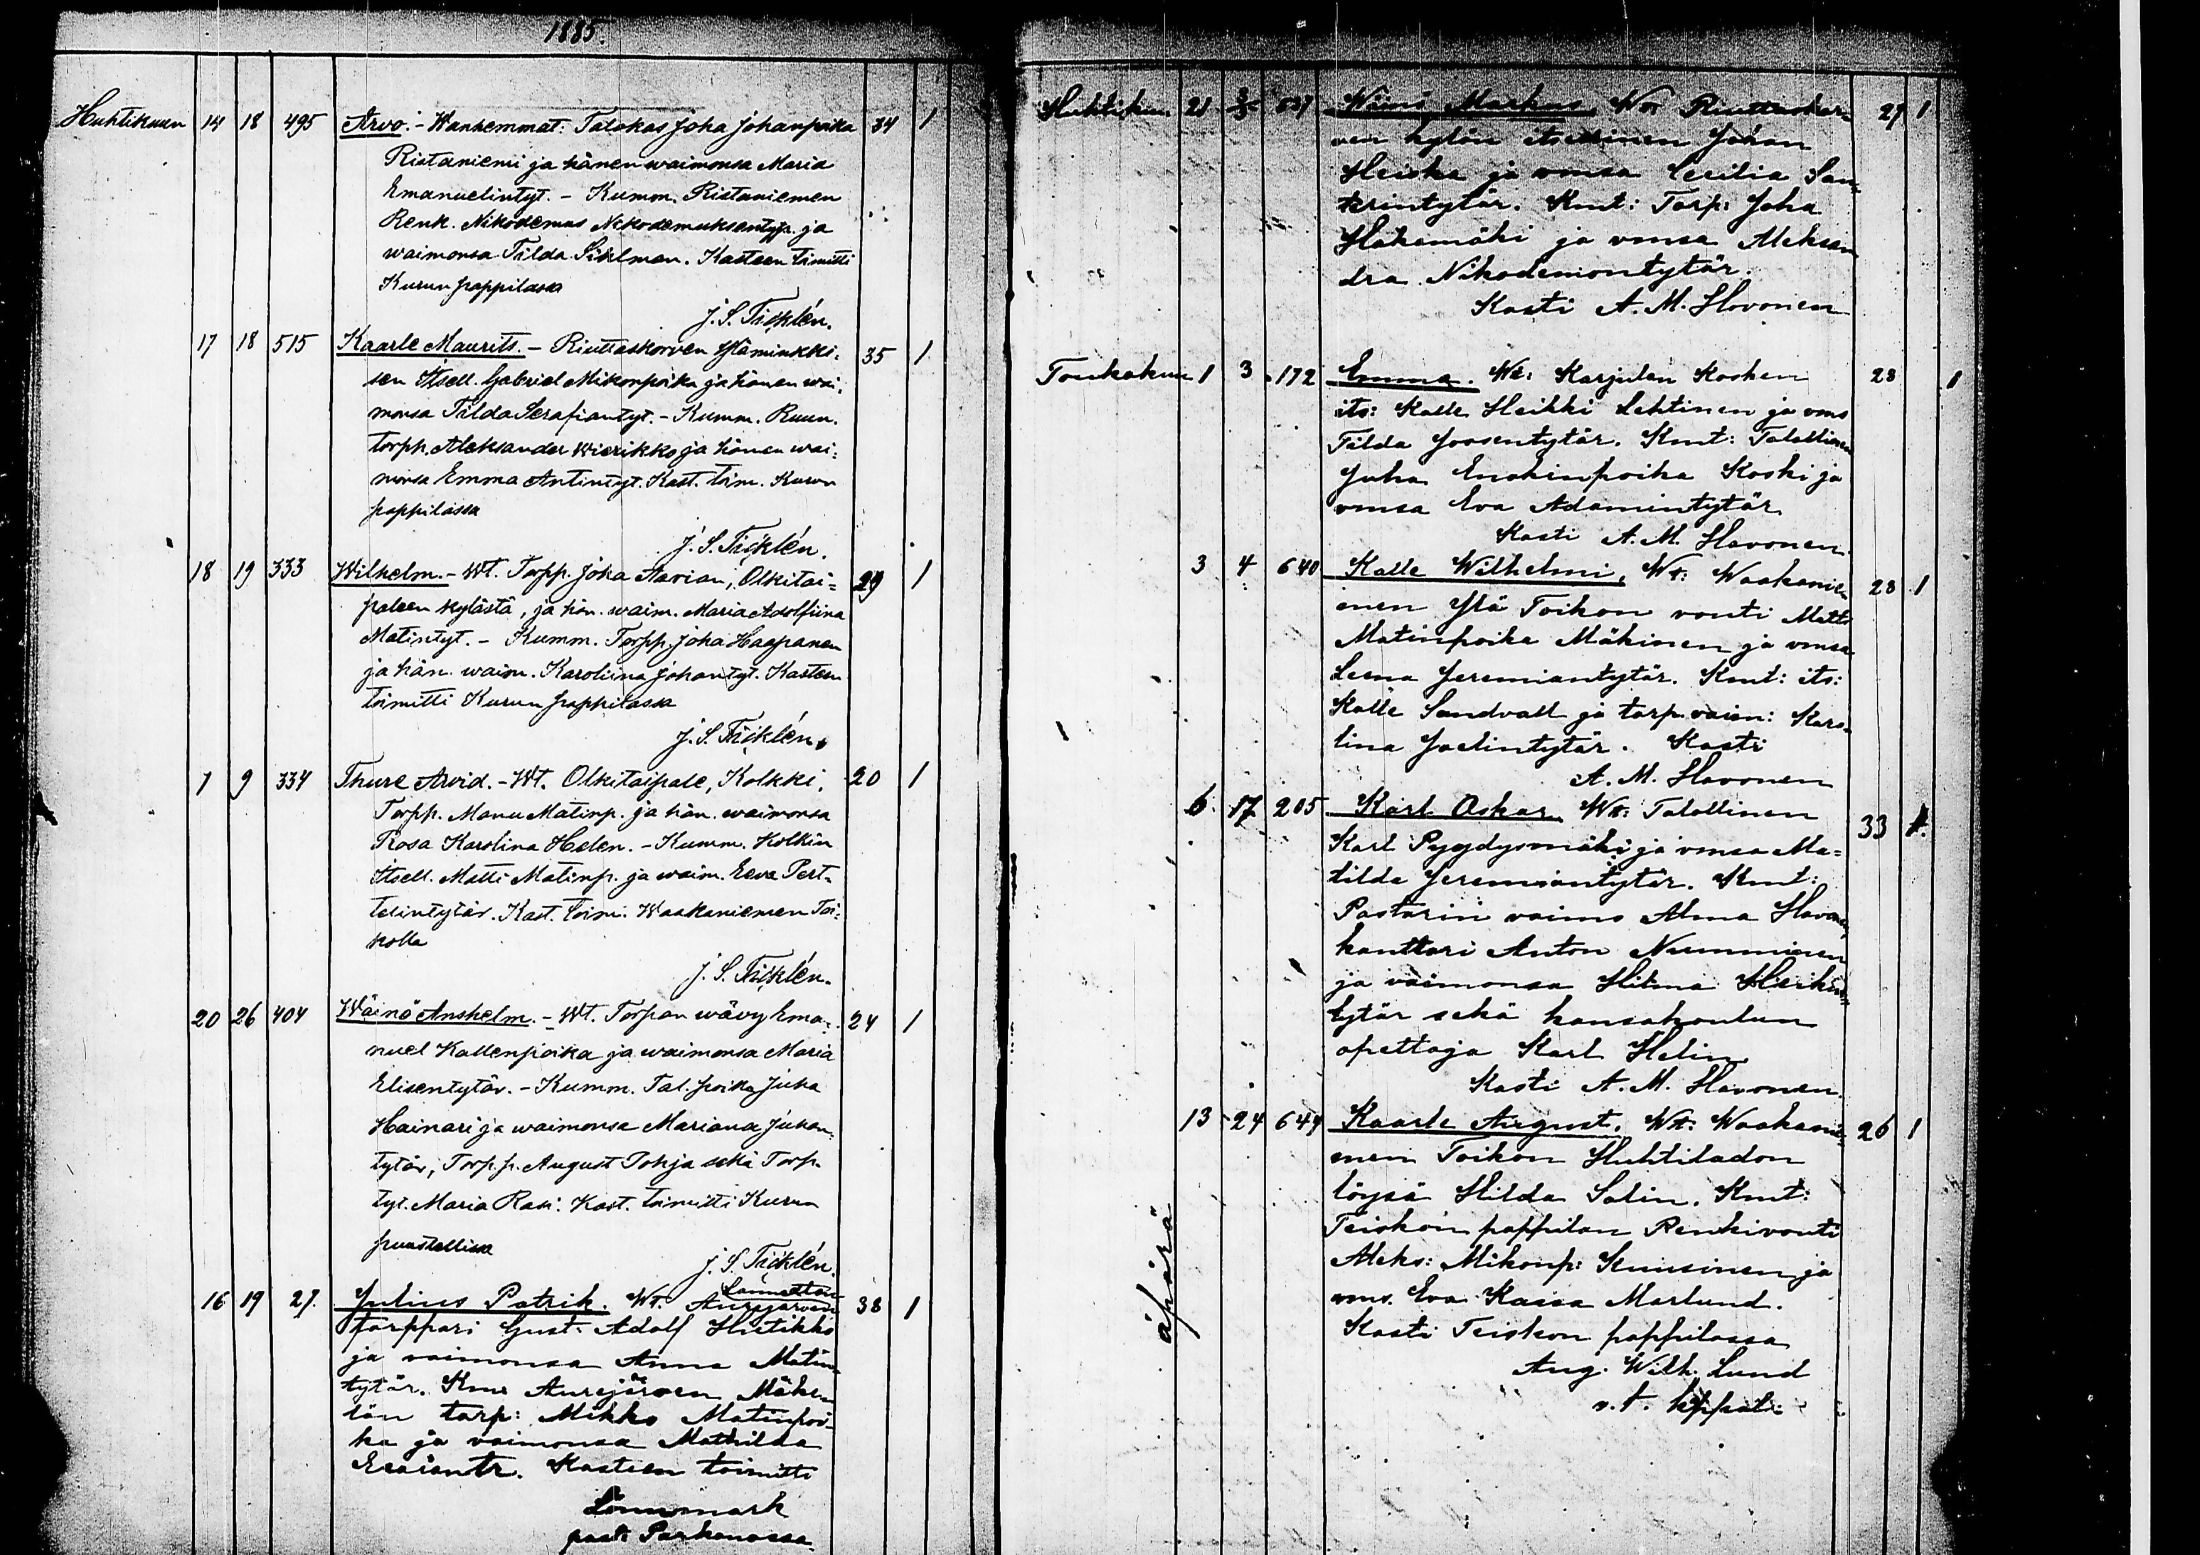 1885.
Huhtikuun 14 18 495 Arvo. - Wanhemmat: Talokas Joha Johanpoika 34 1
Ristaniemi ja hänen waimonsa Maria
Emanuelintyt. - Kumm. Ristaniemen
Renk. Nikodemus Nikodemuksentyp. ja
waimonsa Tilda Sihlman. Kasteen toimitti
Kurun pappilassa
J. S. Ticklén.
17 18 515 Kaarle Maurits. - Riuttaskorven
sen Itsell. Gabriel Mikonpoika ja hänen wai-
monsa Tilda Serafiantyt. - Kumm. Ruun.
torpp. Aleksander Wierikko ja hänen wai-
monsa Emma Antintyt. Kast. toim. Kurun 35 1
pappilassa
J. S. Ticklén.
18 19 333 Wilhelm. - Wt. Torpp. Joha Aavian, Olkitai- 29 1
paleen kylästä, ja hän. waim. Maria Adolfiina
Matintyt. - Kumm. Torpp. Joha Haapanen
ja hän. waim. Karoliina Johantyt. Kasteen
toimitti Kurun pappilassa
J. S. Ticklén.
1 9 334 Thure Arvid. - Wt. Olkitaipale, Kolkki, 20 1
Torpp. Manu Matinp. ja hän. waimonsa
Rosa Karolina Helen. - Kumm. Kolkin
Itsell. Matti Matinp. ja waim. Eeva Pert-
telintytär. Kast. toimi. Waakaniemen Toi-
kolla
J. S. Ticklén.
20 26 404 Wäinö Anshelm. - Wt. Torpan wävy Ema- 24 1
nuel Kallenpoika ja waimonsa Maria
Elisentytär. - Kumm. Tal. poika Juha
Hainari ja waimonsa Mariana Juhan-
tytär, Torp. p. August Pohja sekä Torp.
tyt. Maria Rasi. Kast. toimitti Kurun
puustellissa
J. S. Ticklén.
16 19 27. Julius Patrik. Wt. Aurejärven 38 1
torppari Gust. Adolf Hietikko
ja vaimonsa Anna Matin-
tytär. Kms Aurejärven Mäke-
län torp: Mikko Matinpoi-
ka ja vaimonsa Mathilda
Esaiantr. Kasteen toimitti
Lönnmark
past: Parkanossa.
Huhtikuu. 21 3/5 537 Markus Wt: Riuttaskor- 27 1
ven kylön itsellinen Johan
Heiska ja vmsa Cecilia San-
terintytär. Kmt: Torp: Joha
Hakemäki ja vmsa Aleksan
dra Nikodemontytär.
Kasti A. M. Hovonen
Toukokuu 1 3 172 Emma. Wt: Karjulan Kosken 28 1
its: Kalle Heikki Lehtinen ja vms
Tilda Joosentytär. Kmt: Talollinen
Juha Enokinpoika Koski ja
vmsa Eva Adamintytär
Kasti A. M. Hovonen.
3 4 640 Kalle Wilhelmi, Wt: Waakanie- 28 1
men Ylä Toikon vouti Matti
Matinpoika Mäkinen ja vmsa
Leena Jeremiantytär. Kmt: its:
Kalle Sandvall ja torp. vaim: Karo-
lina Joelintytär. Kasti
A. M. Hovonen
6. 17 205 Karl Oskar. Wt: Talollinen 33 1.
Karl Pyydysmäki ja vmsa Ma-
tilda Jeremiantytär. Kmt:
Pastorin vaimo Alma Hovonen,
kanttori Anton Nurmminen
ja vaimonsa Hilma Heikin-
tytär sekä kansakoulun
opettaja Karl Helin.
Kasti A. M. Hovonen.
13 24 649 Kaarle August. Wt: Waakanie- 26 1
men Toikon Huhtiladon
löysä Hilda Salin. Kmt:
Teiskon pappilan Renkivouti
Aleks: Mikonp: Kuusinen ja
vms. Eva Kaisa Marlund.
Kasti Teiskon pappilassa
Aug. Wilh. Lund
v. t. kppal:
äpärä